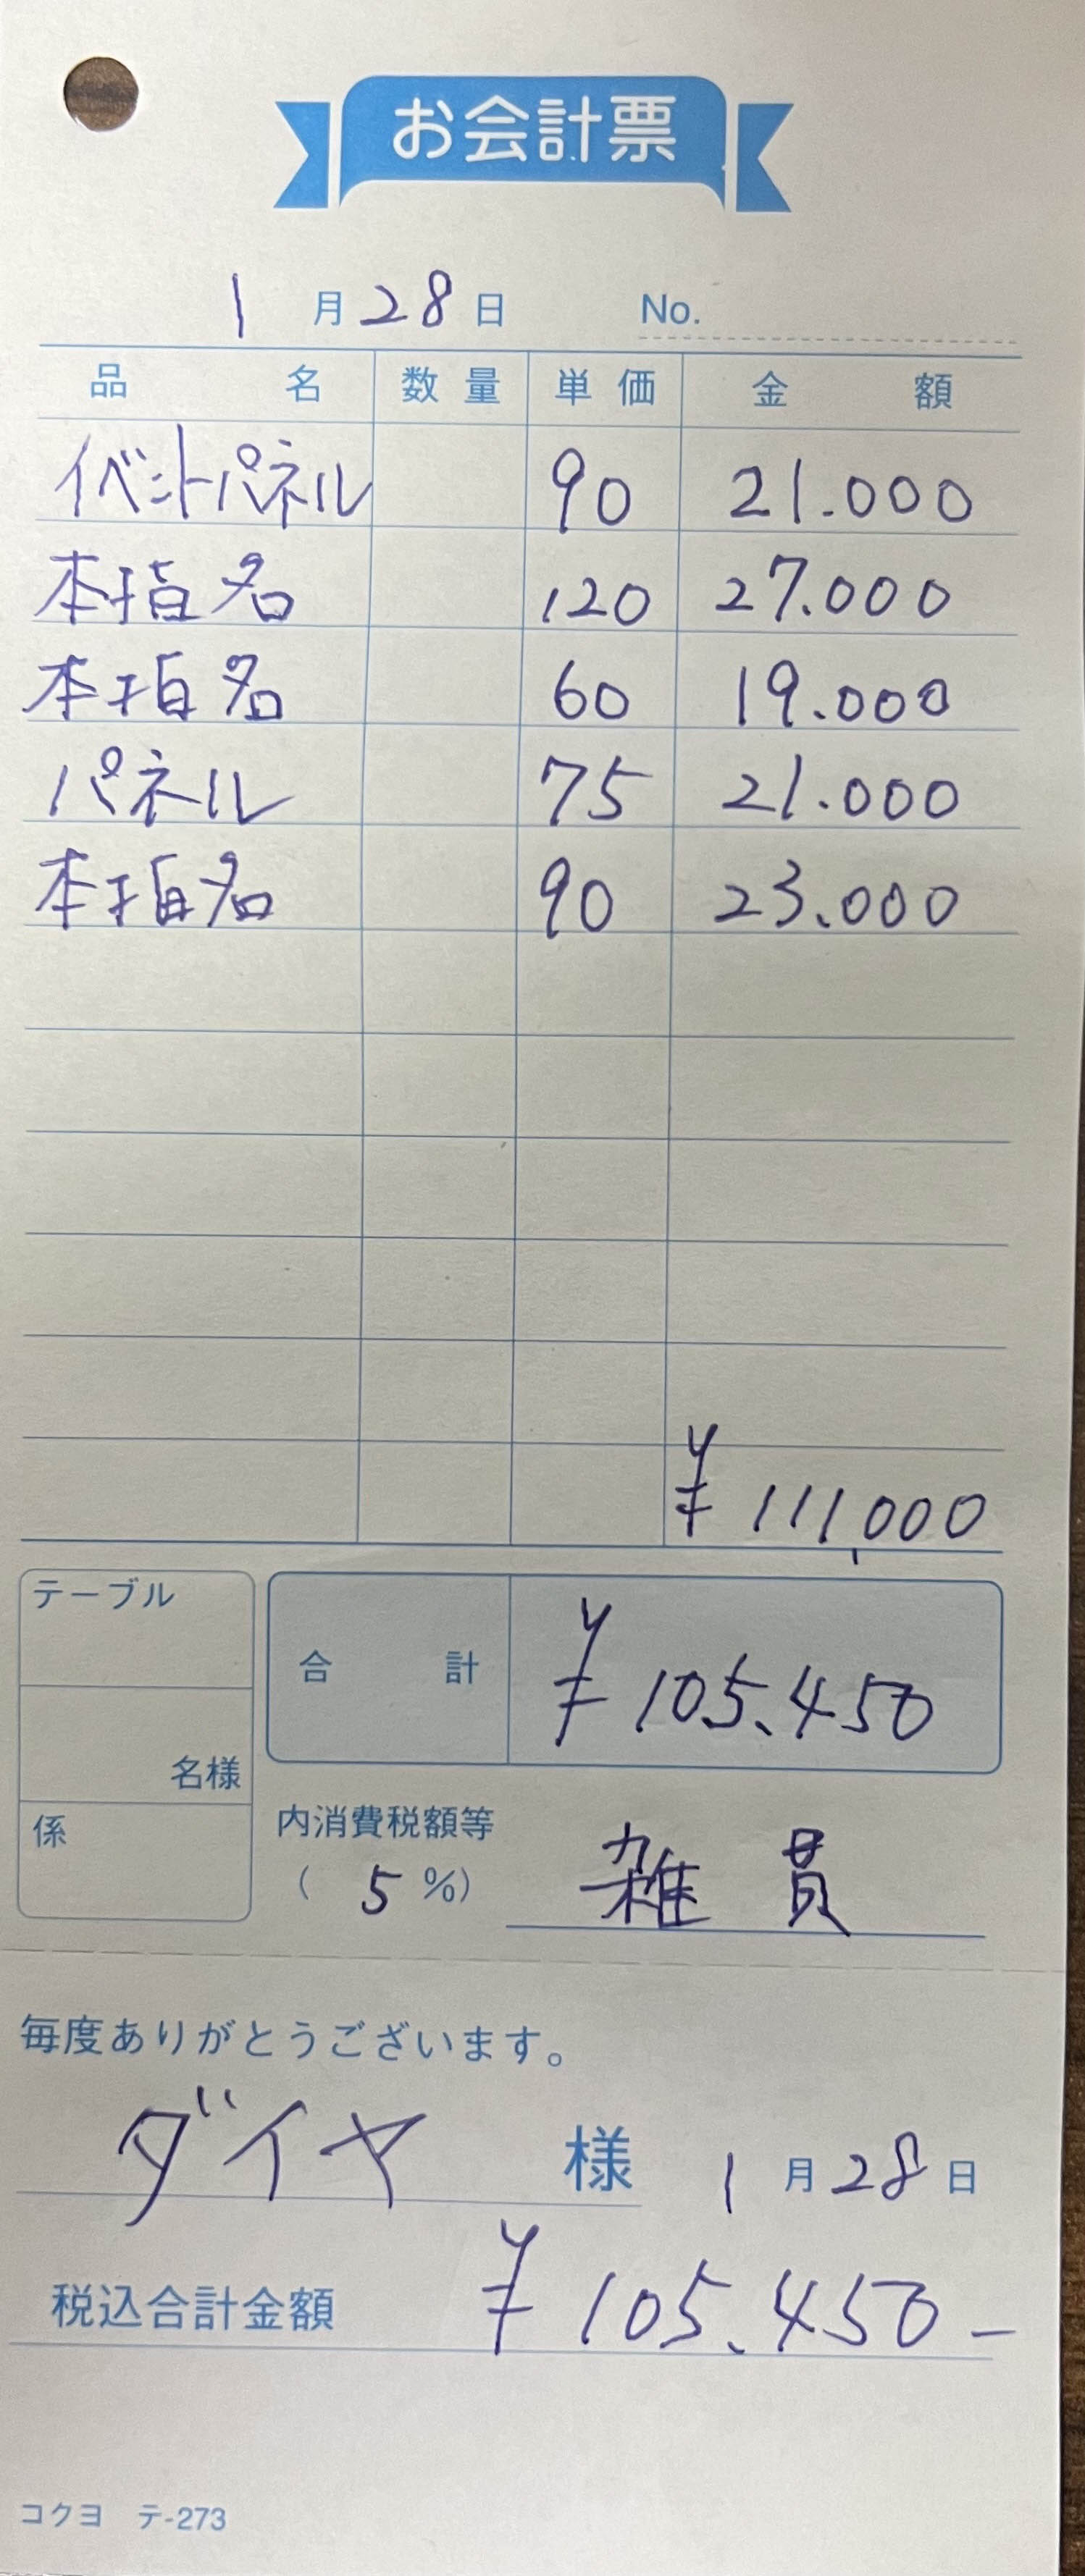 お会計票
1月28日 No.
品名 数量 単価 金額
イベントパネル 90 21.000
本指名 120 27.000
本指名 60 19.000
パネル 75 21.000
本指名 90 23.000
¥111,000
テーブル
合計 ¥105.450
名様
係
内消費税額等
(5%) 雑費
毎度ありがとうございます。
ダイヤ 様 1月28日
税込合計金額 ¥105.450-
コクヨ テ-273